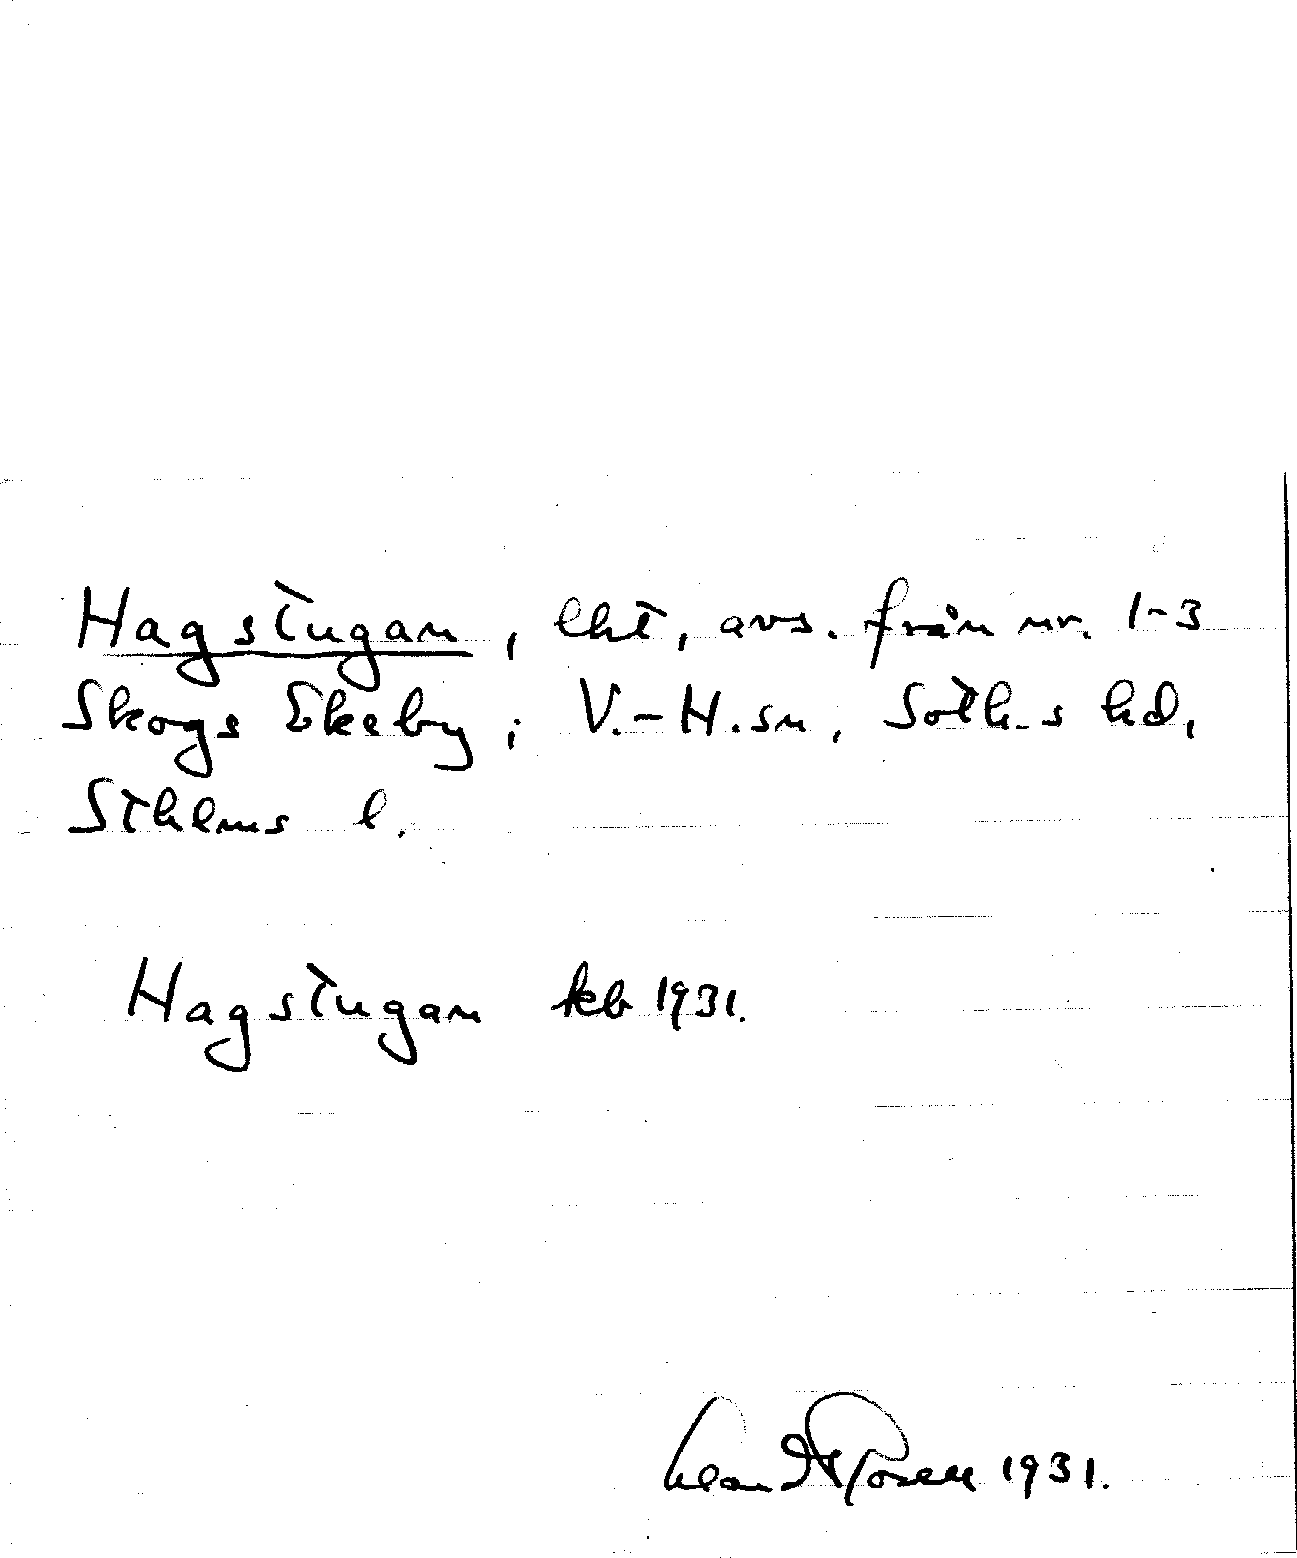 Hagstugan, lht, avs. från nr. 1-3
Skogs Ekeby; V.-H. sn, Soth-s hd,
Sthlms l.
Hagstugan kb 1931.
1931.